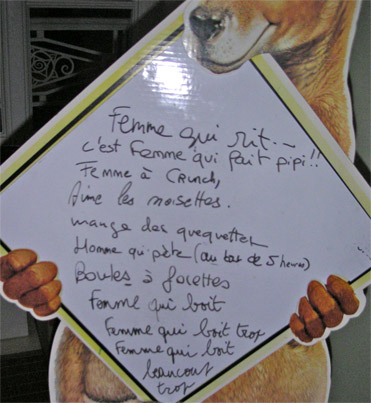 Femme qui rit...
c'est Femme qui fait pipi!!
Femme à Crunch,
Aime les noisettes.
mange des quequettes
Homme qui pète (au bas de 5 heures)
Boules à facettes
Femme qui boit
Femme qui boit trop
Femme qui boit
beaucout
trop